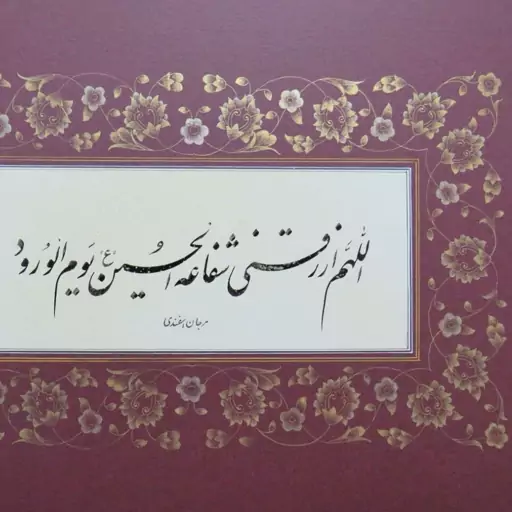 اللهم ارزقنی شفاعه الحسین ع یوم الورود
مرجان اسفندی